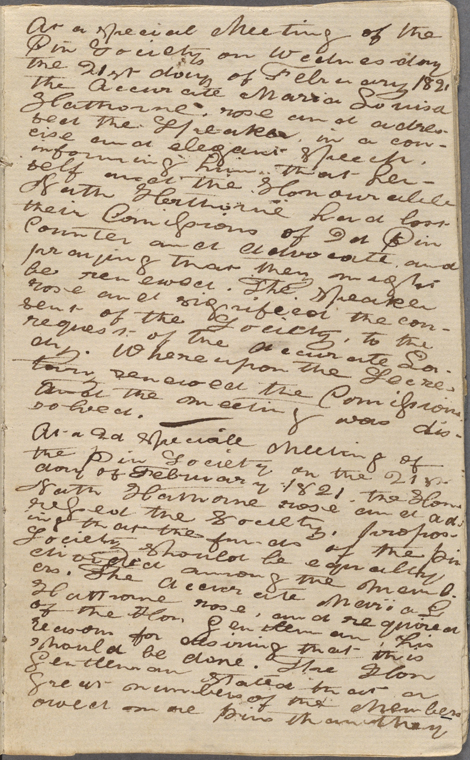 At a special Meeting of the
Pin Society on Wednesday
the 21st day of February 1821
the Accurate Maria Louisa
Hathorne, rose and addres-
sed the Speaker, in a con-
cise and elegant Speech,
informing him that her-
self and the Honourable
Nath Hathorne had lost
their Comissions of 2d Pin
Counter and advocate and
praying that they might
be renewed. The Speaker
rose and signified the con-
sent of the Society, to the
request of the accurate La-
dy. Whereupon the Secre-
tary renewed the Comissions
And the meeting was dis-
solved.
At a 2d Speciale Meeting of
the Pin Society on the 21st
day of February 1821. the Hon
Nath Hathorne rose and ad-
ressed the Society. Propos-
ing that the funds of the Pin
Society should be equally
divided among the Memb-
ers. The accurate Maria L
Hathorne rose, and required
of the Hon Gentleman, his
reason for desiring that this
should be done. The Hon
Gentleman stated that a
great numbers of the Members
owed more pins than they